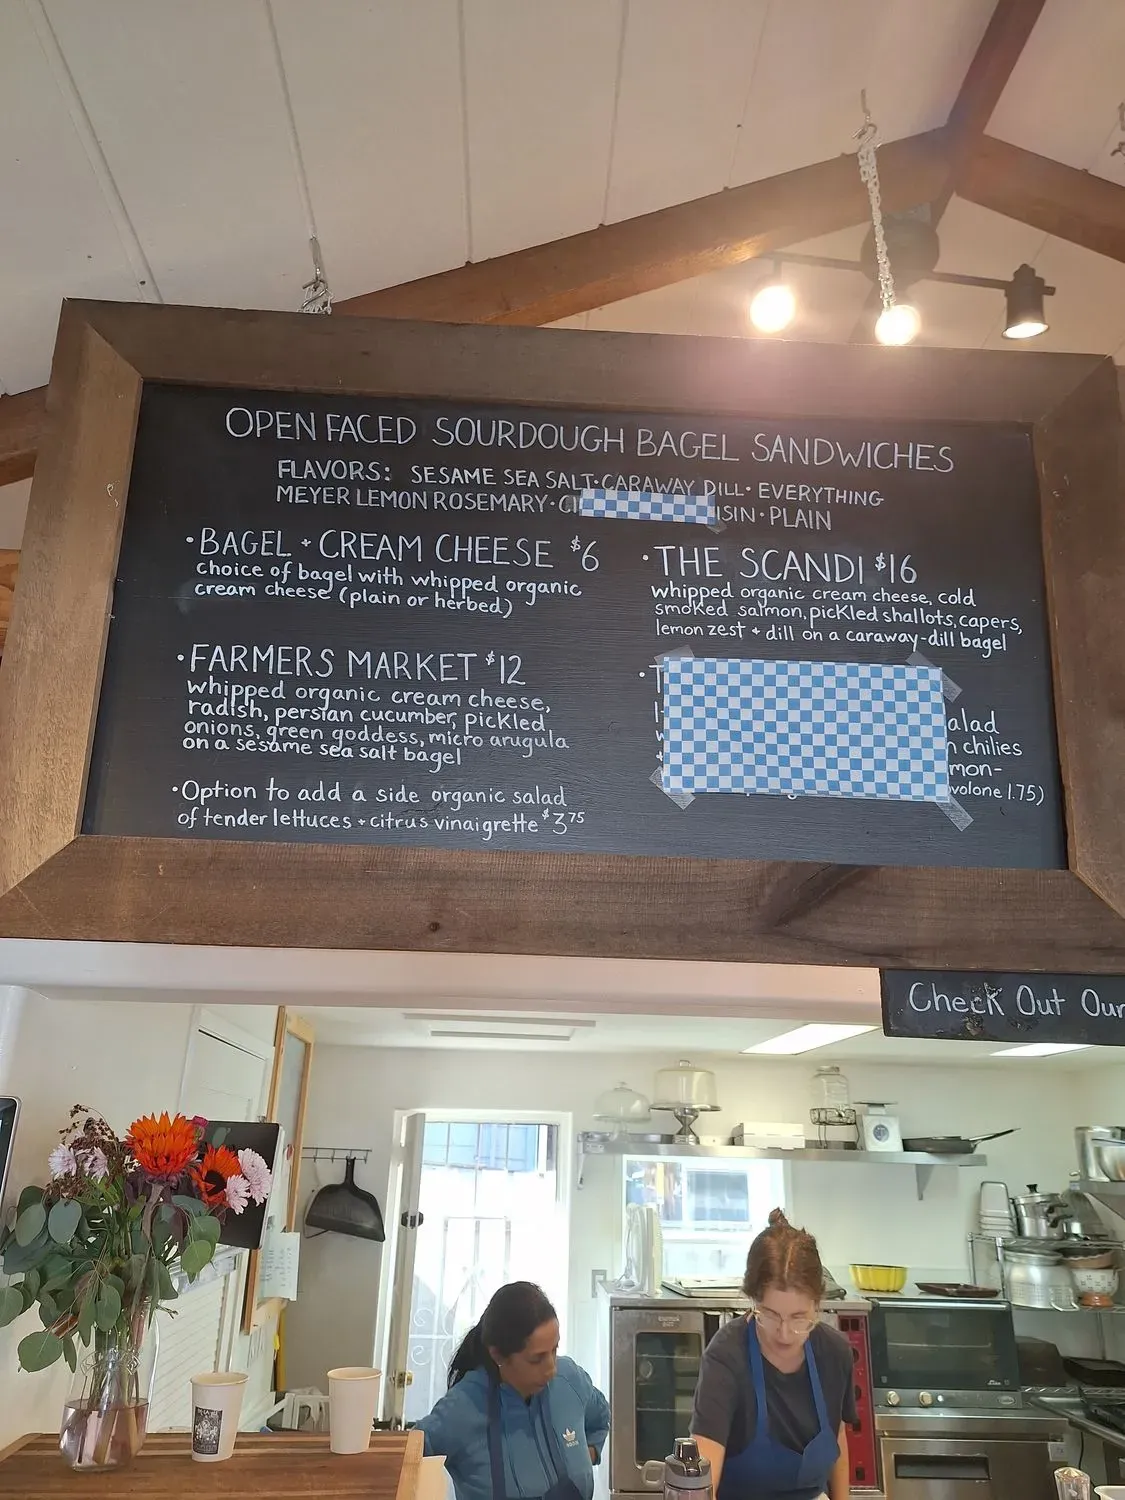 OPEN FACED SOURDOUGH BAGEL SANDWICHES
FLAVORS: SESAME SEA SALT • CARAWAY DILL • EVERYTHING
MEYER LEMON ROSEMARY • PLAIN
• BAGEL + CREAM CHEESE $6
choice of bagel with whipped organic
cream cheese (plain or herbed)
• FARMERS MARKET $12
whipped organic cream cheese,
radish, persian cucumber, pickled
onions, green goddess, micro arugula
on a sesame sea salt bagel
• Option to add a side organic salad
of tender lettuces + citrus vinaigrette $3.75
• THE SCANDI $16
whipped organic cream cheese, cold
smoked salmon, pickled shallots, capers,
lemon zest + dill on a caraway-dill bagel
alad
chilies
mon-
volone 1.75)
Check Out Our